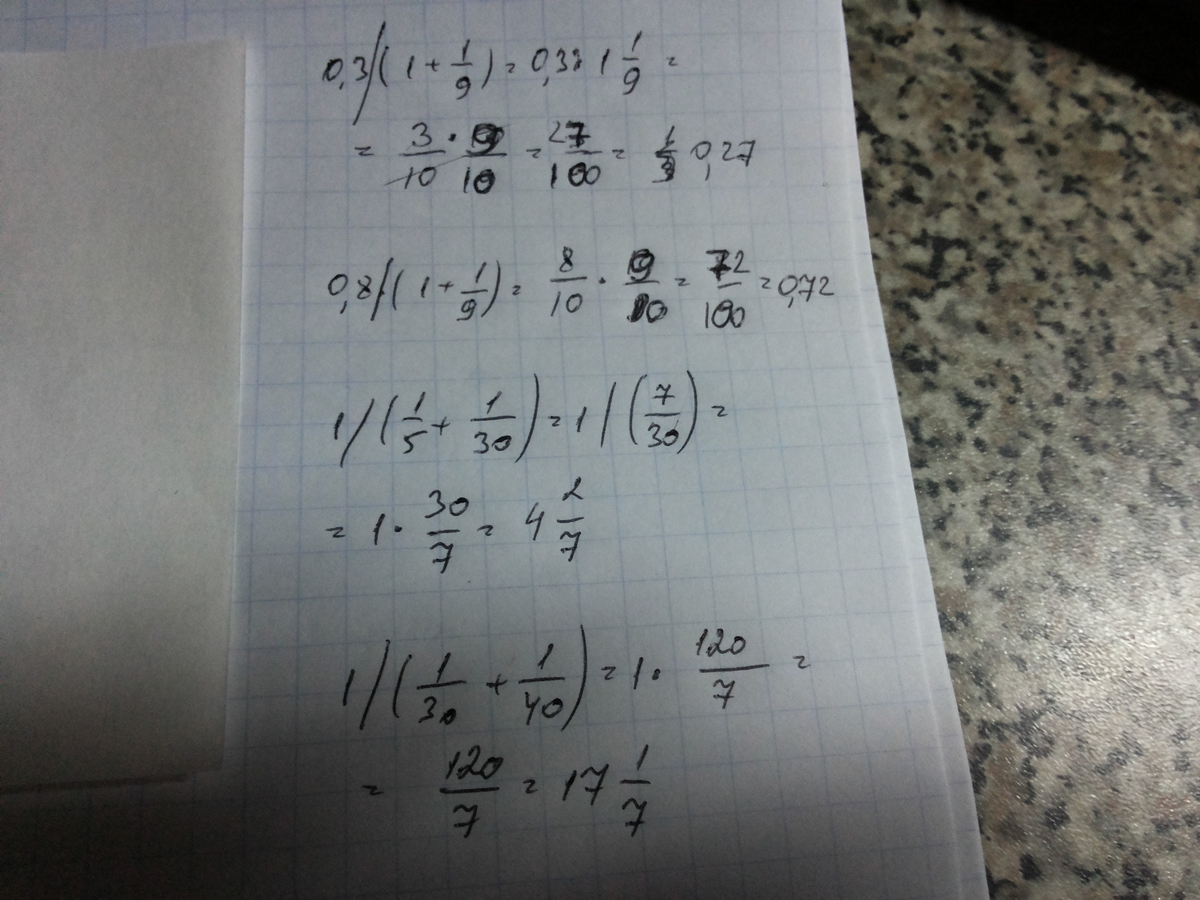 0,3/(1+1/9)=0,3: 1 1/9 =
= 3/10 · 9/10 = 27/100 = 0,27
0,8/(1+1/9)= 8/10 · 9/10 = 72/100 =0,72
1/(1/5+1/30)=1/(7/30)=
= 1 · 30/7 = 4 2/7
1/(1/30+1/40)=1· 120/7 =
= 120/7 = 17 1/7